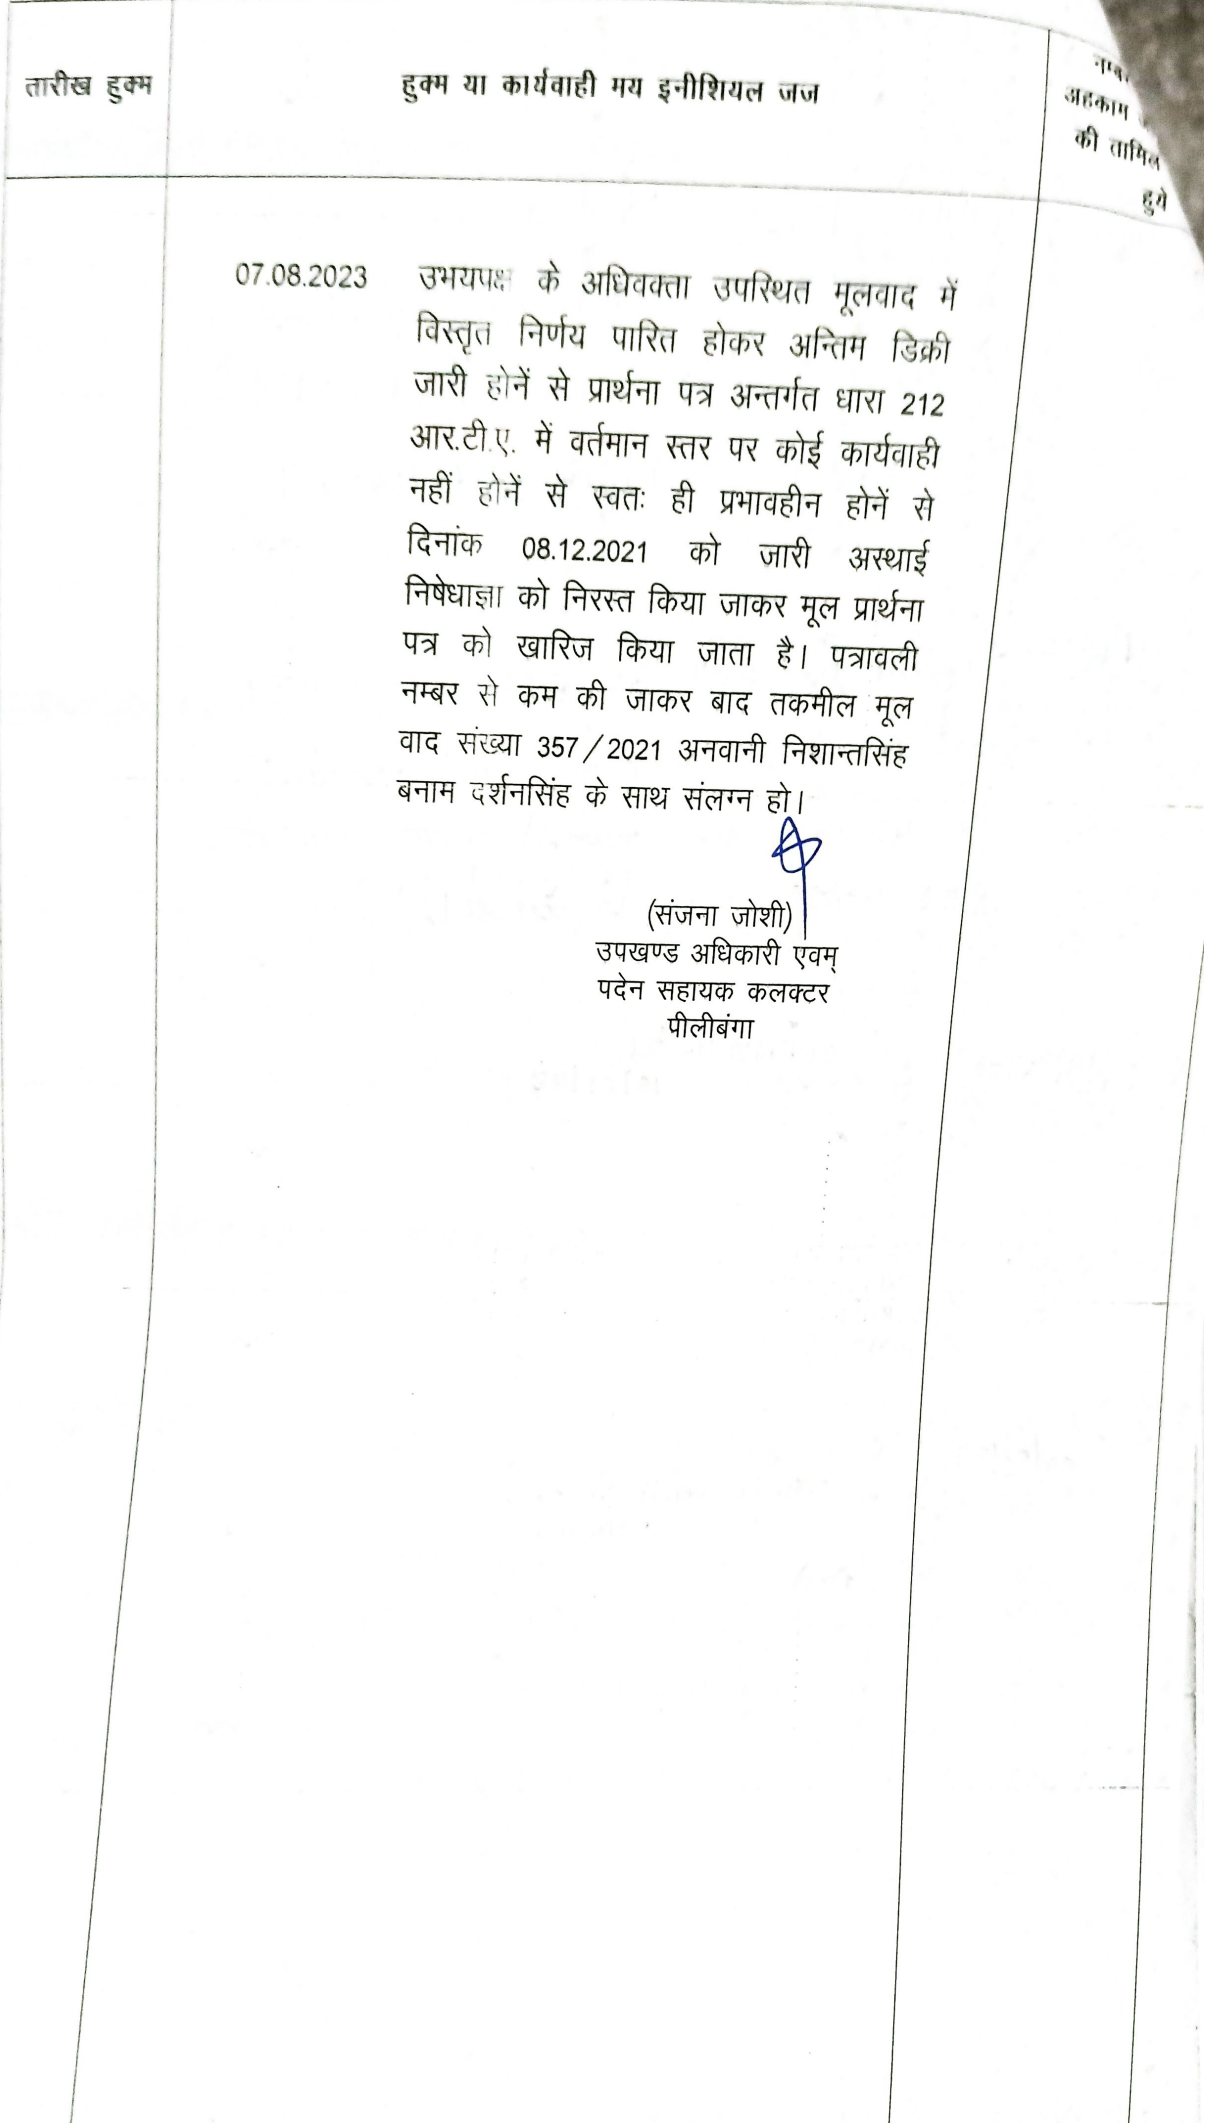 तारीख हुक्म
हुक्म या कार्यवाही मय इनीशियल जज
अहकाम
की तामिल
हुये
07.08.2023
उभयपक्ष के अधिवक्ता उपस्थित मूलवाद में
विस्तृत निर्णय पारित होकर अन्तिम डिक्री
जारी होनें से प्रार्थना पत्र अन्तर्गत धारा 212
आर.टी.ए. में वर्तमान स्तर पर कोई कार्यवाही
नहीं होनें से स्वतः ही प्रभावहीन होनें से
दिनांक 08.12.2021 को जारी अस्थाई
निषेधाज्ञा को निरस्त किया जाकर मूल प्रार्थना
पत्र को खारिज किया जाता है। पत्रावली
नम्बर से कम की जाकर बाद तकमील मूल
वाद संख्या 357/2021 अनवानी निशान्तसिंह
बनाम दर्शनसिंह के साथ संलग्न हो।
(संजना जोशी)
उपखण्ड अधिकारी एवम्
पदेन सहायक कलक्टर
पीलीबंगा